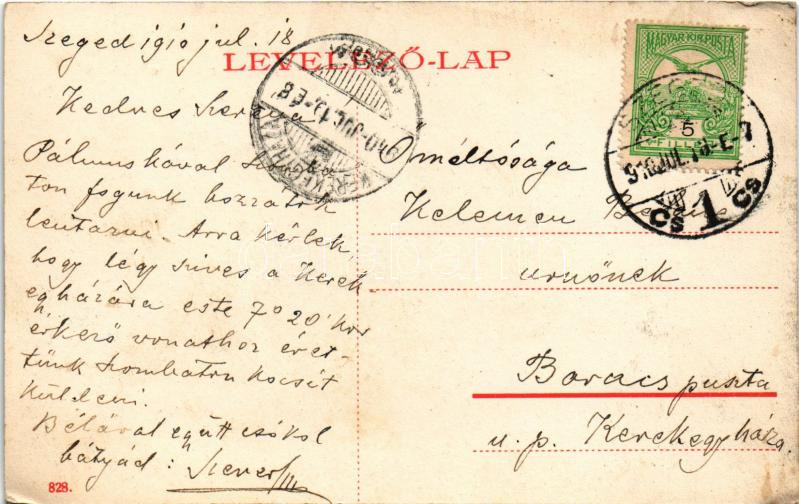 Szeged 1910 jul. 18
LEVELEZŐ-LAP
MAGYAR KIR. POSTA
5
910 JUL
1
Cs Cs
Kedves
Pálmuskával
ton fogunk hozzátok
leutazni. Arra kérlek,
hogy légy szíves a Kerek
egyházára este 7º 20' kor
érkező vonathoz éret-
tünk szombaton kocsit
küldeni.
Bélával együtt csókol
bátyád:
Őméltósága
Kelemen
urnőnek
Baracs puszta
u. p. Kerekegyháza.
828.